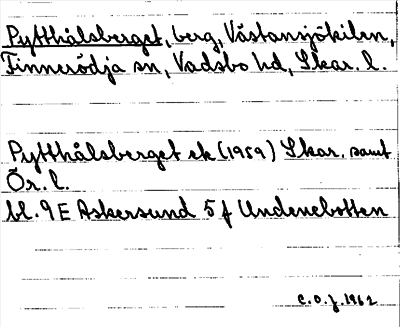 Pytthålsberget, berg, Västansjökilen,
Finnerödja sn, Vadsbo hd, Skar. l.
Pytthålsberget ek (1959) Skar. samt
Ör. l.
bl. 9E Askersund 5 f Undenebotten
C.O.J. 1962